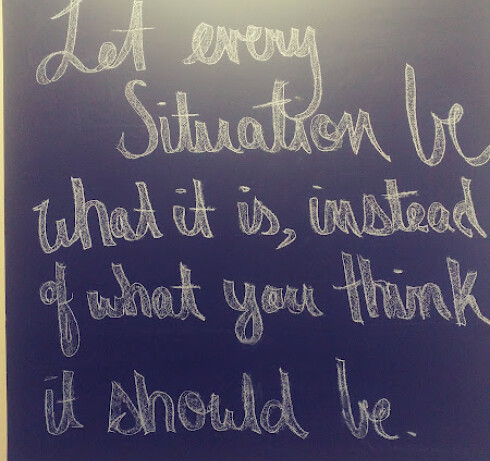 Let every
Situation be
what it is, instead
of what you think
it should be.